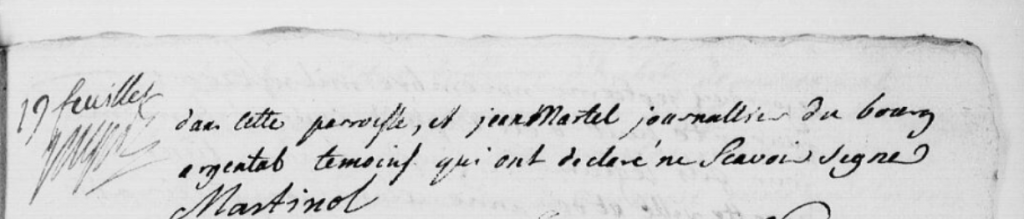 19 feuillet
dans cette parroisse, et jean Martel journallier du bourg
argental temoins qui ont declaré ne scavoir signer
Martinol